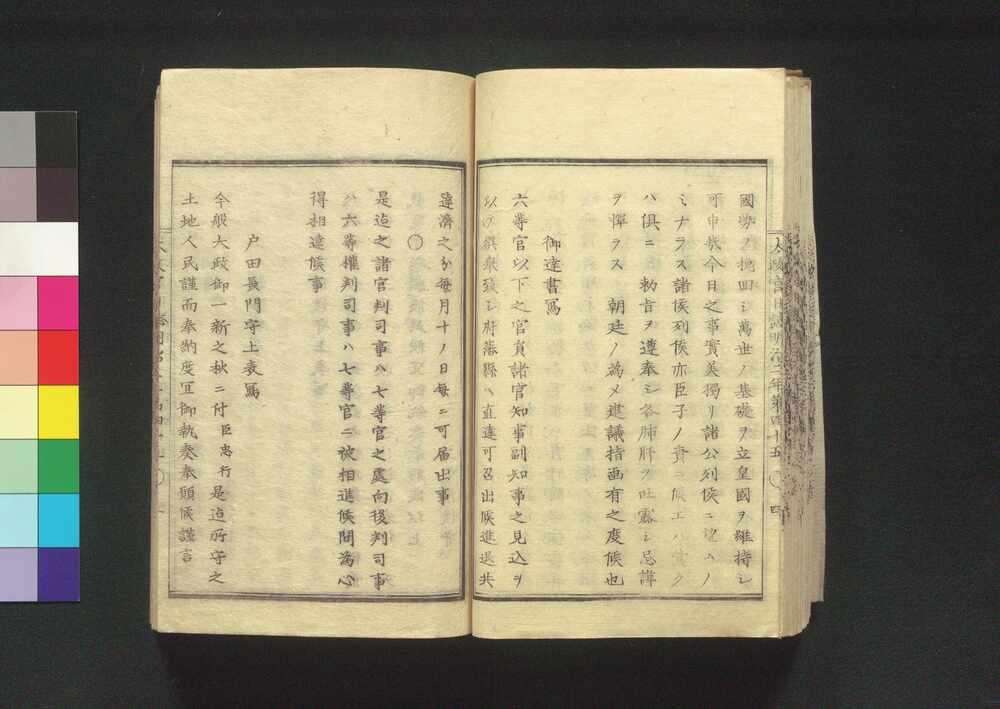 國勢ヲ挽回シ萬世ノ基礎ヲ立皇國ヲ維持シ
可申哉今日之事實美獨リ諸公列侯ニ望ムノ
ミナラス諸侯列侯亦臣子ノ責ニ候エハ
ハ俱ニ 勅旨ヲ遵奉シ各肺肝ヲ吐露シ忌諱
ヲ憚ラス 朝廷ノ為メ建議指画有之度候也
御達書寫
六等官以下之官員諸官知事副知事之見込ヲ
以テ撰擧致シ府藩縣ヘ直達可召出候進退共
達濟之分毎月十ノ日毎ニ可届出事
〇
是迄之諸官判司事ハ七等官之處向後判司事
ハ六等權判司事ハ七等官ニ被相進候間為心
得相達候事
戸田長門守上表寫
今般大政御一新之秋ニ付臣忠行是迄所守之
土地人民謹而奉納度宜御執奏奉願候謹言
太政官日誌明治二年第四十五 〇 四